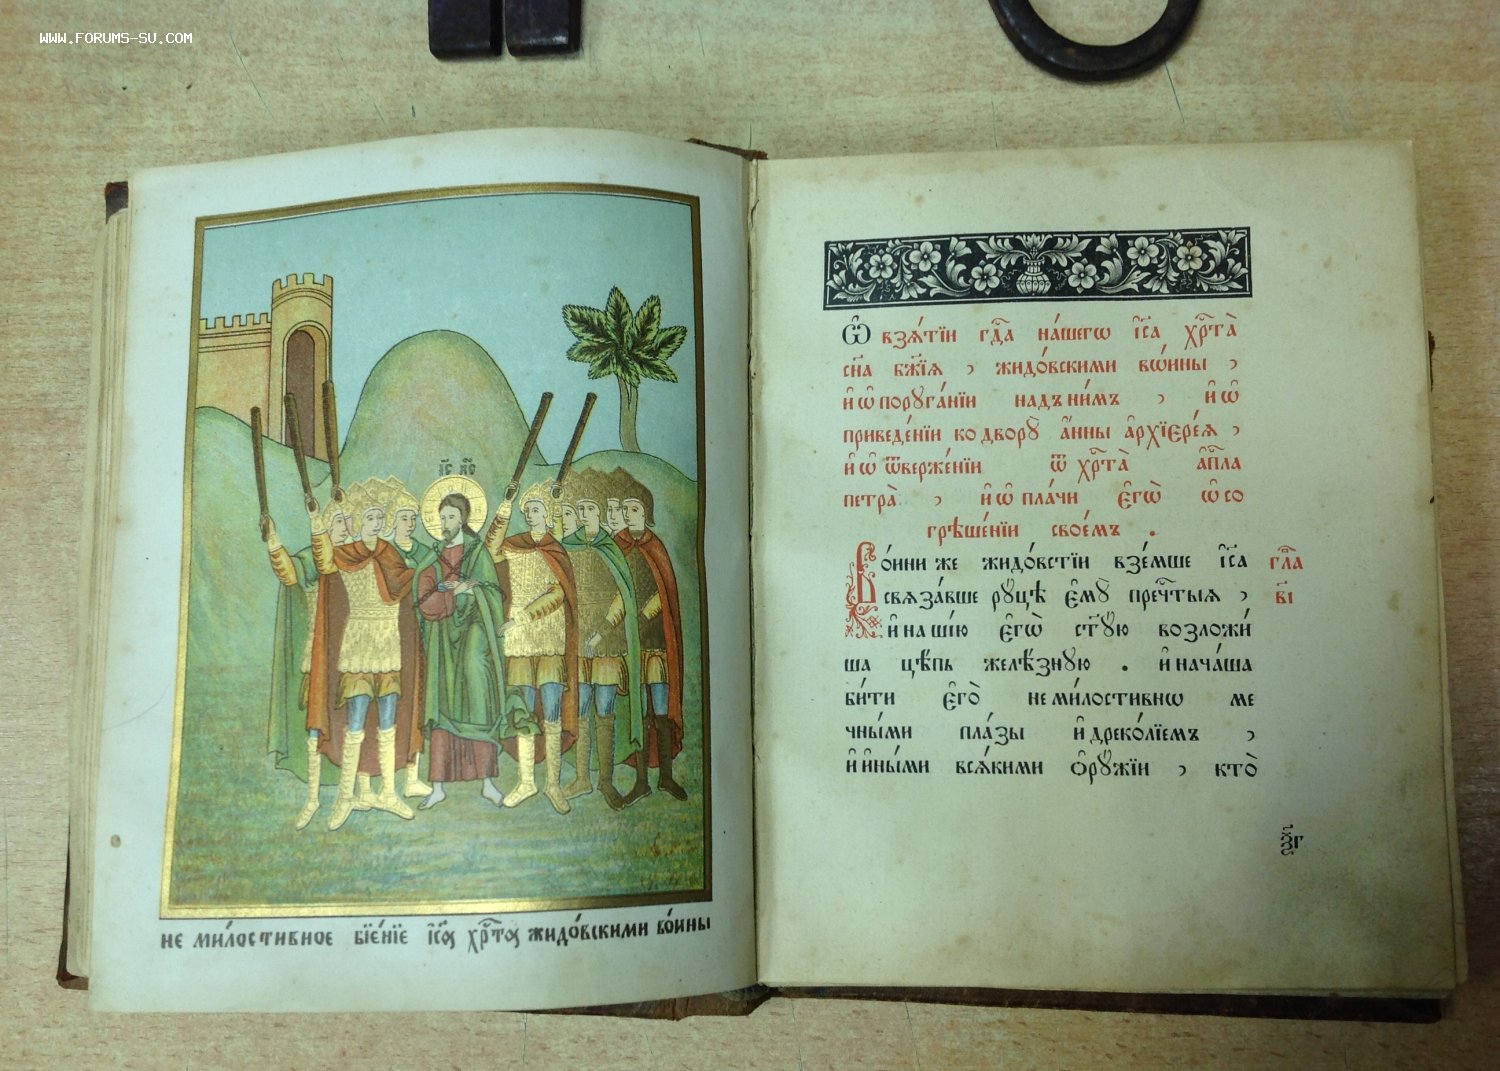 WWW.FORUMS-SU.COM
І҃С Х҃С
не ми́лостивное бїе́нїе і҆с҃ос хрⷭ҇тос жидо́вскими во́ины
Ѽ взѧ́тїи гдⷭ҇а на́шегѡ і҆с҃а хрⷭ҇та̀
сн҃а бж҃їѧ , жидо́вскими вѡ́ины ,
и҆ ѡ҆ порꙋга́нїи надъ ни́мъ , и҆ ѡ҆
приведе́нїи ко дворꙋ̀ а҆́нны а҆рхїере́ѧ ,
и҆ ѡ҆ ѿверже́нїи ѿ хрⷭ҇та̀ а҆пⷭ҇ла
петра̀ , и҆ ѡ҆ пла́чи є҆гѡ̀ ѡ҆ со
грѣше́нїи свое́мъ .
Во́ини же жидо́встїи взе́мше і҆с҃а гла҃
свѧза́вше рꙋ́цѣ є҆мꙋ̀ преч҇тыѧ , в҃і
и҆ на ши́ю є҆гѡ̀ ст҃ꙋю возложи́
ша цѣ́пь желѣ́знꙋю . и҆ нача́ша
би́ти є҆го̀ не ми́лостивнѡ ме
чны́ми пла́зы и҆ дреко́лїемъ ,
и҆ и҆ны́ми всѧ́кими ѻ҆рꙋ́жїи , кто̀